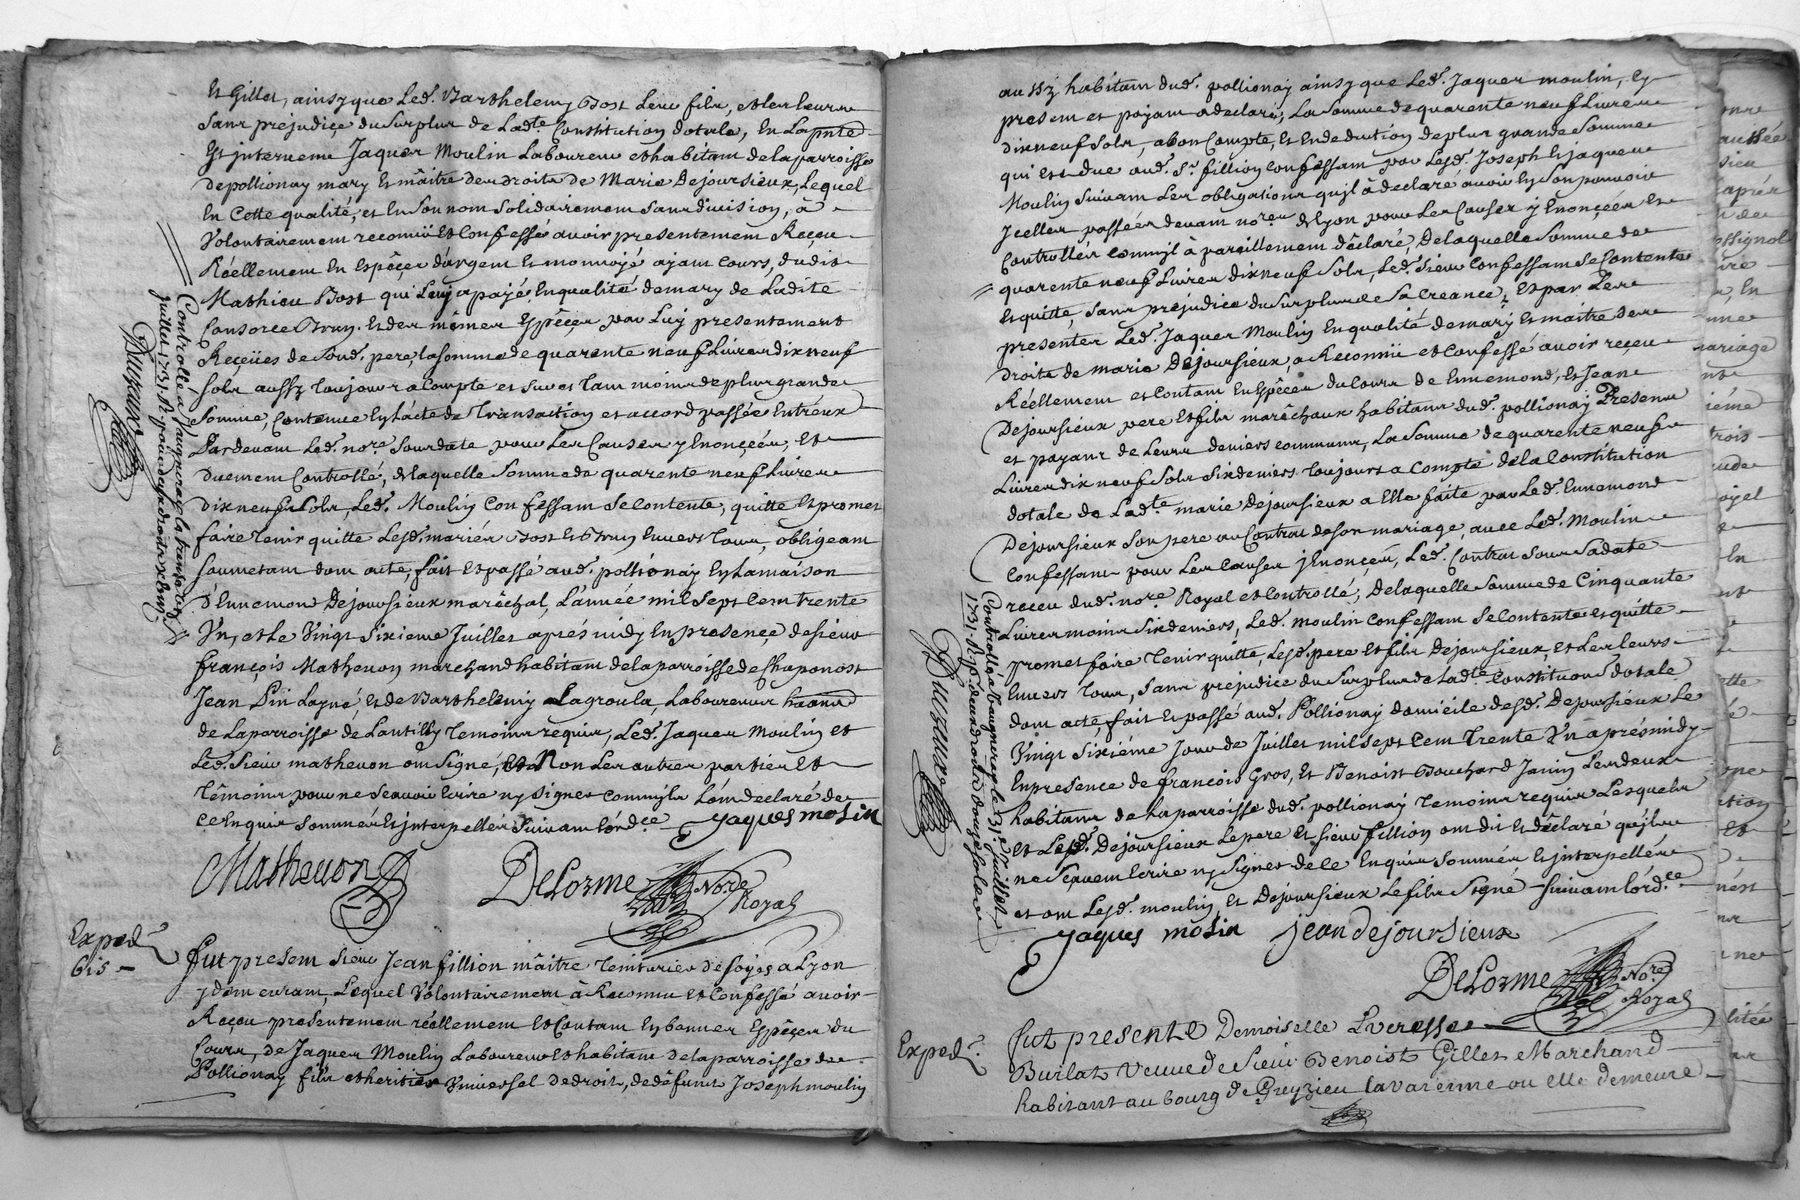 Et Gillet, ainsy que Led. Barthelemy Bost leur fils, et les leurs
sans préjudice du surplus de Ladte. Constitution dotale, En Lapnte
Est intervenu Jaques Moulin Laboureur et habitant de la parroisse
de pollionay mary et mâitre des droits de Marie Dejoursieux, Lequel
En Cette qualité, et En son nom solidairement sans division, à
volontairement reconnü et Confessé avoir presentement Reçeu
Réellement En Espéçes d'argent et monnoye ayant cours, dudit
Mathieu Bost qui Luy a payé En qualité de mary de Ladite
Consorce Brun, et des mêmes Espéçes par Luy presentement
Reçeües de Sond. pere, la somme de quarente neuf Livres dix neuf
sols aussy toujours a compte et sur et tant moins de plus grande
somme, Contenüe En L'acte de Transaction et accord passée Entr'eux
Pardevant Led. nore. sous datte pour Les Causes y Enonçées, et
duement Controllé, de laquelle somme de quarente neuf Livres
dix neuf sols, Led. Moulin Confessant se Contente, quitte Et promet
faire tenir quitte Lesd. mariés Bost et Brun Envers tous, obligeant
soumetant dont acte, fait et passé aud. pollionay En la maison
d'Ennemon Dejoursieux maréchal, L'année mil sept cent trente
Un, et Le Vingt sixieme Juillet après midy En presençe de sieur
françois Mathevon marchand habitant de la parroisse de Chaponost
Jean Pin Layné, et de Barthelemy Lagroula, Laboureurs
de La parroisse de Lantilly temoins requis, Led. Jaques Moulin et
Led. sieur mathevon ont signé, Non Les autres parties Et
Témoins pour ne sçavoir Ecrire ny signer comm'ils L'ont declaré de
ce Enquis sommés Et interpellés suivant l'ordce. yaques molin
Mathevon DeLorme Nore Royal
Exped. bis
fut present sieur Jean fillion mâitre teinturier de soyes a Lyon
y demeurant, Lequel Volontairement à Reconnu et Confessé avoir
Reçeu presentement réellement Et Contant En bonnes Espéçes du
Cours, de Jaques Moulin Laboureur et habitant de la parroisse de
Pollionay fils et heritier Universel de droit, de défunt Joseph moulin
Controllé a Vaugneray le trente et un
juillet 1731. R.
Duvivier
aussy habitant dud. pollionay ainsy que Led. Jaques moulin, Ey
present et payant a declaré, La somme de quarente neuf Livres
dix neuf sols, a bon Compte, et En deduction de plus grande somme
qui Est due aud. sr. fillion Confessant par Lesd. Joseph Et jaques
Moulin suivant Les obligations qu'il à declaré avoir En son pouvoir
Jcelles passées devant nores. de Lyon pour Les Causes y Enonçées Et
Controllées comm'il à pareillement déclaré, De laquelle somme de
quarente neuf Livres dix neuf sols, Led. sieur Confessant se Contente
et quitte, sans préjudice du surplus de sa Creance, Et par Les
presentes Led. Jaques Moulin En qualité de mary Et maitre des
droits de marie Dejoursieux, a Reconnü et Confessé avoir reçeu
Réellement et Contant En Espéçes du Cours de Ennemond, et Jean
Dejoursieux pere et fils maréchaux habitans dud. pollionay Presens
et payans de Leurs deniers communs, La somme de quarente neuf
Livres dix neuf sols six deniers toujours a compte de la Constitution
dotale de Ladte. marie Dejoursieux a Elle faite par Led. Ennemond
Dejoursieux son pere au Contrat de son mariage, avec Led. Moulin
Confessant pour Les causes y Enonçées, Led. Contrat sous sa datte
reçeu dud. nore. Royal et Controllé, de laquelle somme de Cinquante
Livres moins six deniers, Led. moulin Confessant se Contente et quitte
promet faire tenir quitte, Lesd. pere et fils Dejoursieux et Les leurs
Envers tous, sans prejudice du surplus de Ladte. Constitution dotale
dont acte, fait Et passé aud. Pollionay domicile desd. Dejoursieux Le
Vingt sixiéme Jour de Juillet mil sept cent trente Un aprés midy
En presence de françois Gros, Et Benoist Bouchard Janin Les deux
habitans de la parroisse dud. pollionay temoins requis Lesquels
et Lesd. Dejoursieux Le pere Et sieur fillion ont dit Et déclaré qu'ils
ne sçavent Ecrire ny signer de ce Enquis sommés Et interpellés
et ont Lesd. moulin Et Dejoursieux Le fils signé suivant l'ordce.
yaques molin jean dejoursieux
DeLorme Nore Royal
Exped.
fut presente Demoiselle Lucresse
Burlat veuve de sieur Benoist Gillet Marchand
habitant au bourg de Greyzieu lavarenne ou elle demeure
Controllé a Vaugneray le 31e. Juillet
1731. R.
Duvivier